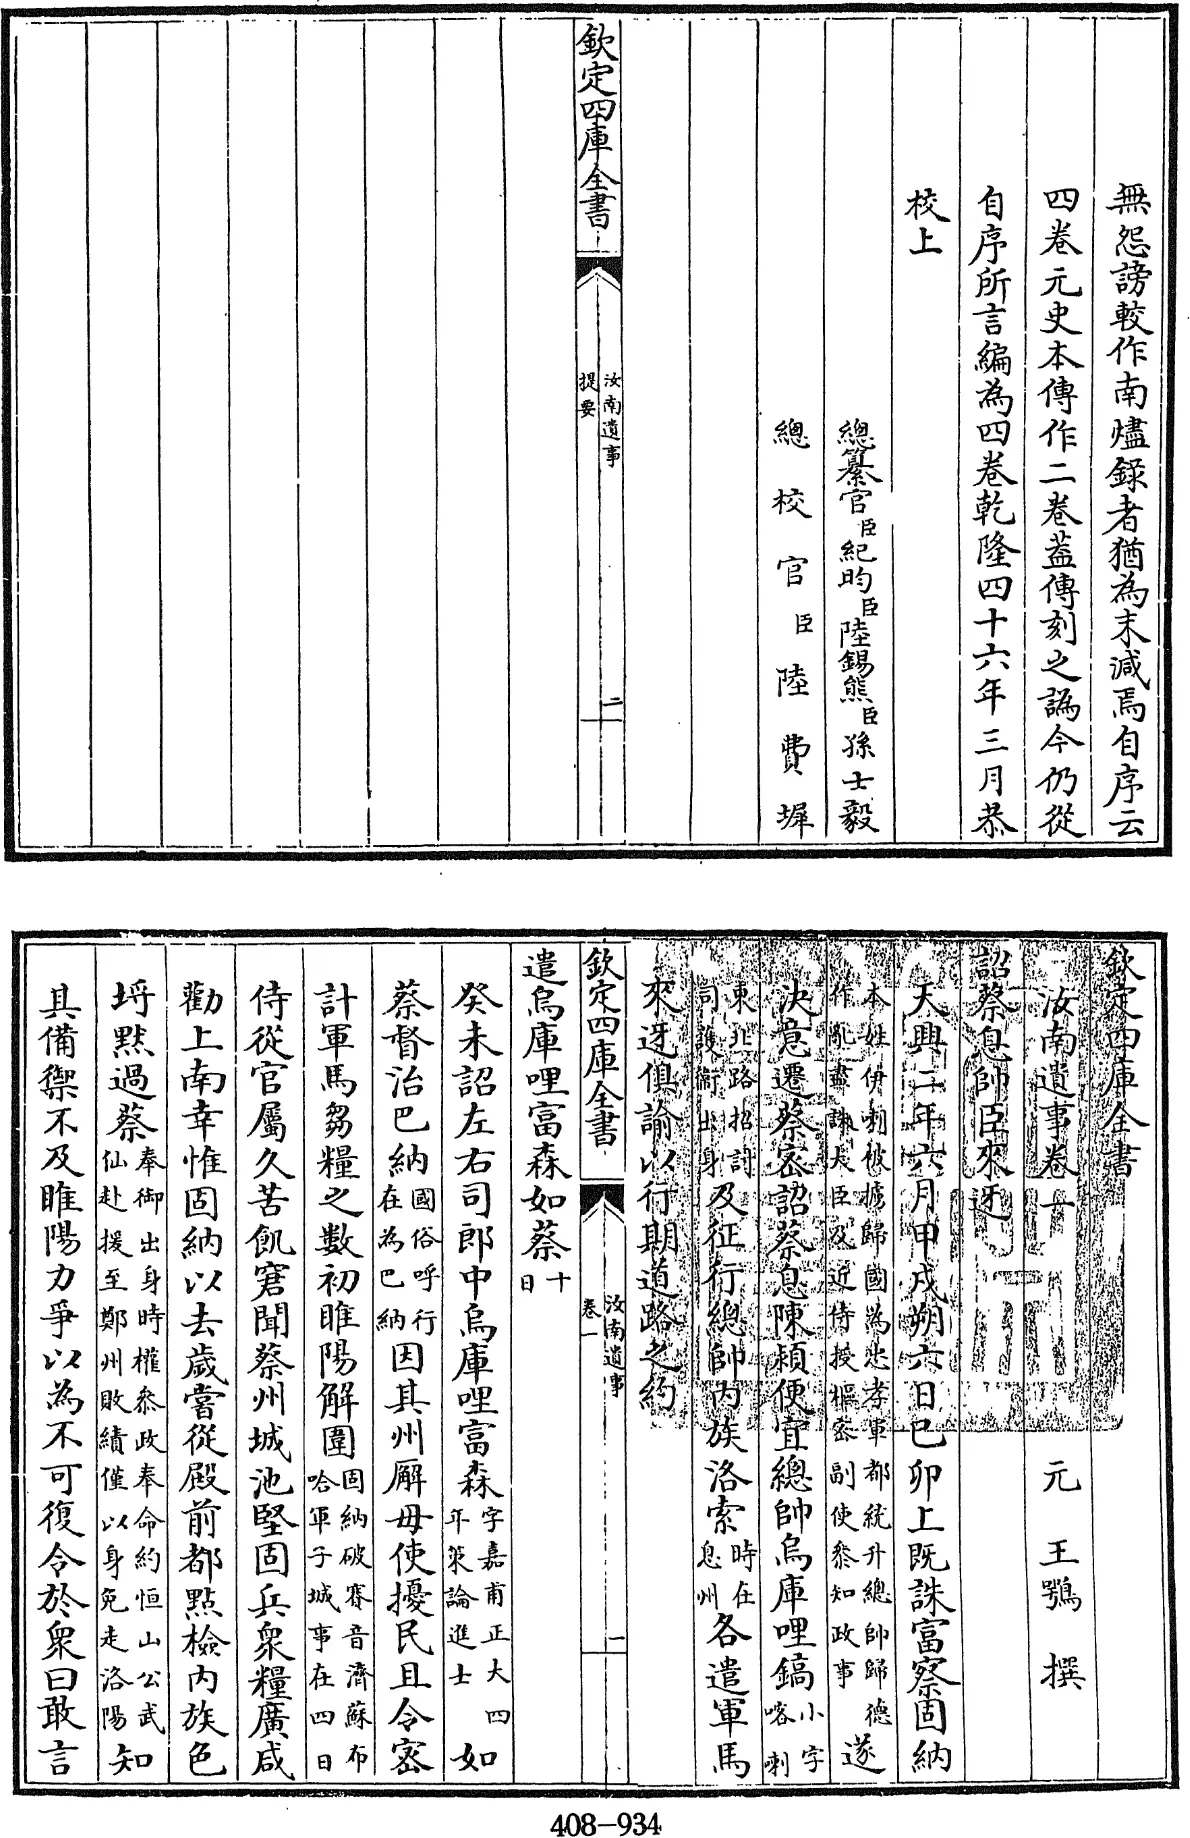 無怨謗較作南燼録者猶為末減焉自序云
四卷元史本傳作二卷葢傳刻之譌今仍從
自序所言編為四卷乾隆四十六年三月恭
校上
總纂官臣紀昀臣陸錫熊臣孫士毅
總校官臣陸費墀
欽定四庫全書
汝南遺事
提要
二
欽定四庫全書
汝南遺事卷一
元 王鶚 撰
詔蔡息帥臣來迓
天興二年六月甲戌朔六日己卯上既誅富察固納
本姓伊喇被擄歸國為忠孝軍都統升總帥歸德
作亂盡誅大臣及近侍授樞密副使叅知政事
遂
決意遷蔡密詔蔡息陳潁便宜總帥烏庫哩鎬
小字
喀喇
東北路招討
司護衛出身
及征行總帥内族洛索
時在
息州
各遣軍馬
來迓俱諭以行期道路之約
欽定四庫全書
汝南遺事
卷一
一
遣烏庫哩富森如蔡
十
日
癸未詔左右司郎中烏庫哩富森
字嘉甫正大四
年策論進士
如
蔡督治巴納
國俗呼行
在為巴納
因其州廨毋使擾民且令密
計軍馬芻糧之數初睢陽解圍
固納破賽音濟蘇布
哈軍子城事在四日
侍從官屬久苦飢窘聞蔡州城池堅固兵衆糧廣咸
勸上南幸惟固納以去歲嘗從殿前都㸃檢内族色
埒默過蔡
奉御出身時權叅政奉命約恒山公武
仙赴援至鄭州敗績僅以身免走洛陽
知
其備禦不及睢陽力爭以為不可復令於衆曰敢言
408-934